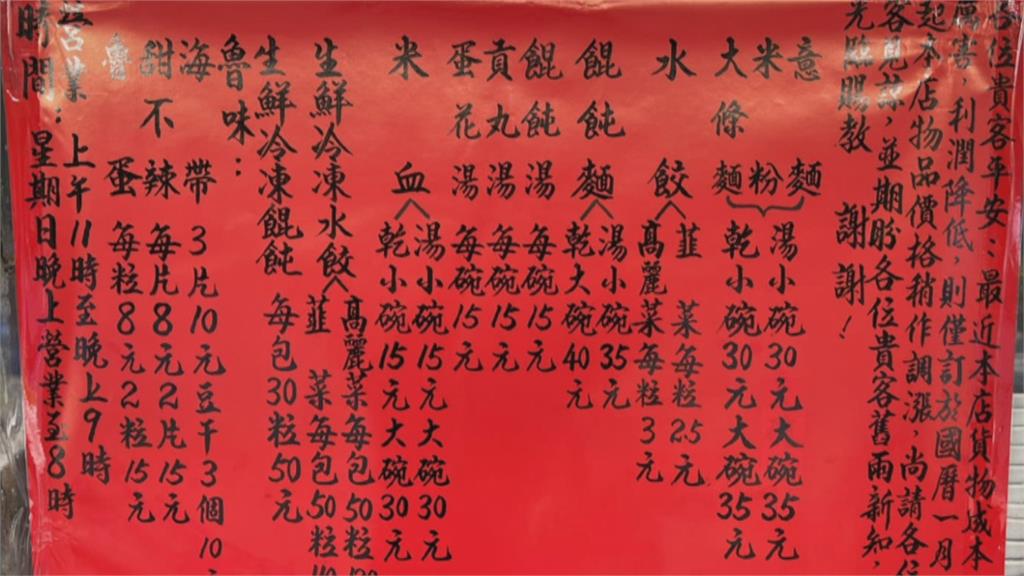 各位貴客平安：最近本店貨物成本
厲害，利潤降低，則僅訂於國曆一月
起本店物品價格稍作調漲，尚請各位
客見諒，並期盼各位貴客舊雨新知，
光臨賜教 謝謝！
意 麵
米 粉
大條麵
湯小碗30元大碗35元
乾小碗30元大碗35元
水 餃
韮 菜每粒2.5元
高麗菜每粒3元
餛飩麵
湯小碗35元
乾大碗40元
餛飩湯每碗15元
貢丸湯每碗15元
蛋花湯每碗15元
米 血
湯小碗15元大碗30元
乾小碗15元大碗30元
生鮮冷凍水餃
高麗菜每包50粒
韮 菜每包50粒
生鮮冷凍餛飩 每包30粒50元
魯味：
海 帶 3片10元豆干3個10
甜不辣每片8元2片15元
魯 蛋每粒8元2粒15元
營業 上午11時至晚上9時
時間：星期日晚上營業至8時